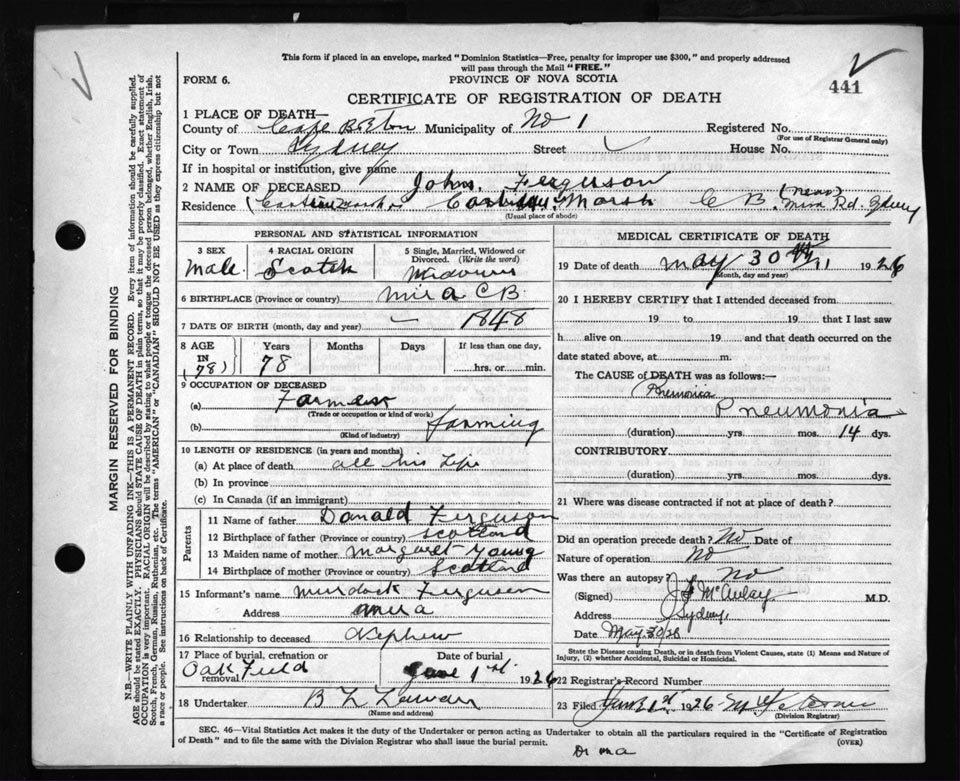 This form if placed in an envelope, marked "Dominion Statistics—Free, penalty for improper use $300," and properly addressed
will pass through the Mail "FREE."
FORM 6.
PROVINCE OF NOVA SCOTIA
441
CERTIFICATE OF REGISTRATION OF DEATH
1 PLACE OF DEATH—
County of Cape Breton Municipality of No 1 Registered No.
(For use of Registrar General only)
City or Town Sydney Street House No.
If in hospital or institution, give name
2 NAME OF DECEASED John Ferguson
Residence Marsh C B. (near) Mira Rd. Sydney
(Usual place of abode)
PERSONAL AND STATISTICAL INFORMATION
3 SEX
Male
4 RACIAL ORIGIN
Scotch
5 Single, Married, Widowed or Divorced. (Write the word)
Widower
6 BIRTHPLACE (Province or country) Mira C B.
7 DATE OF BIRTH (month, day and year) 1848
8 AGE IN (78)
Years
78
Months
Days
If less than one day,
hrs. or min.
9 OCCUPATION OF DECEASED
(a) Farmer
(Trade or occupation or kind of work)
(b) farming
(Kind of industry)
10 LENGTH OF RESIDENCE (in years and months)
(a) At place of death all his Life
(b) In province
(c) In Canada (if an immigrant)
Parents
11 Name of father Donald Ferguson
12 Birthplace of father (Province or country) Scotland
13 Maiden name of mother Margaret Young
14 Birthplace of mother (Province or country) Scotland
15 Informant's name Murdock Ferguson
Address Mira
16 Relationship to deceased Nephew
17 Place of burial, cremation or removal Oak Field
Date of burial
June 1st. 1926
18 Undertaker B L
(Name and address)
MEDICAL CERTIFICATE OF DEATH
19 Date of death May 30th 1926
(Month, day and year)
20 I HEREBY CERTIFY that I attended deceased from
19 to 19 that I last saw
h alive on 19 and that death occurred on the
date stated above, at m.
The CAUSE of DEATH was as follows:—
Pneumonia
(duration) yrs. mos. 14 dys.
CONTRIBUTORY
(duration) yrs. mos. dys.
21 Where was disease contracted if not at place of death?
Did an operation precede death? No Date of
Nature of operation No
Was there an autopsy? No
(Signed) McAulay M.D.
Address Sydney
Date May 30/26
State the Disease causing Death, or in death from Violent Causes, state (1) Means and Nature of Injury, (2) whether Accidental, Suicidal or Homicidal.
22 Registrar's Record Number
23 Filed June 1st. 1926
(Division Registrar)
SEC. 46—Vital Statistics Act makes it the duty of the Undertaker or person acting as Undertaker to obtain all the particulars required in the "Certificate of Registration
of Death" and to file the same with the Division Registrar who shall issue the burial permit.
(OVER)
MARGIN RESERVED FOR BINDING
N.B.—WRITE PLAINLY WITH UNFADING INK—THIS IS A PERMANENT RECORD. Every item of information should be carefully supplied.
AGE should be stated EXACTLY. PHYSICIANS should STATE CAUSE OF DEATH in plain terms, so that it may be properly classified. Exact statement of
OCCUPATION is very important. RACIAL ORIGIN will be described by stating to what people or tongue the deceased person belonged, whether English, Irish,
Scotch, French, German, Russian, Ruthenian, etc. The terms "AMERICAN" or "CANADIAN" SHOULD NOT BE USED as they express citizenship but not
a race or people. See instructions on back of Certificate.